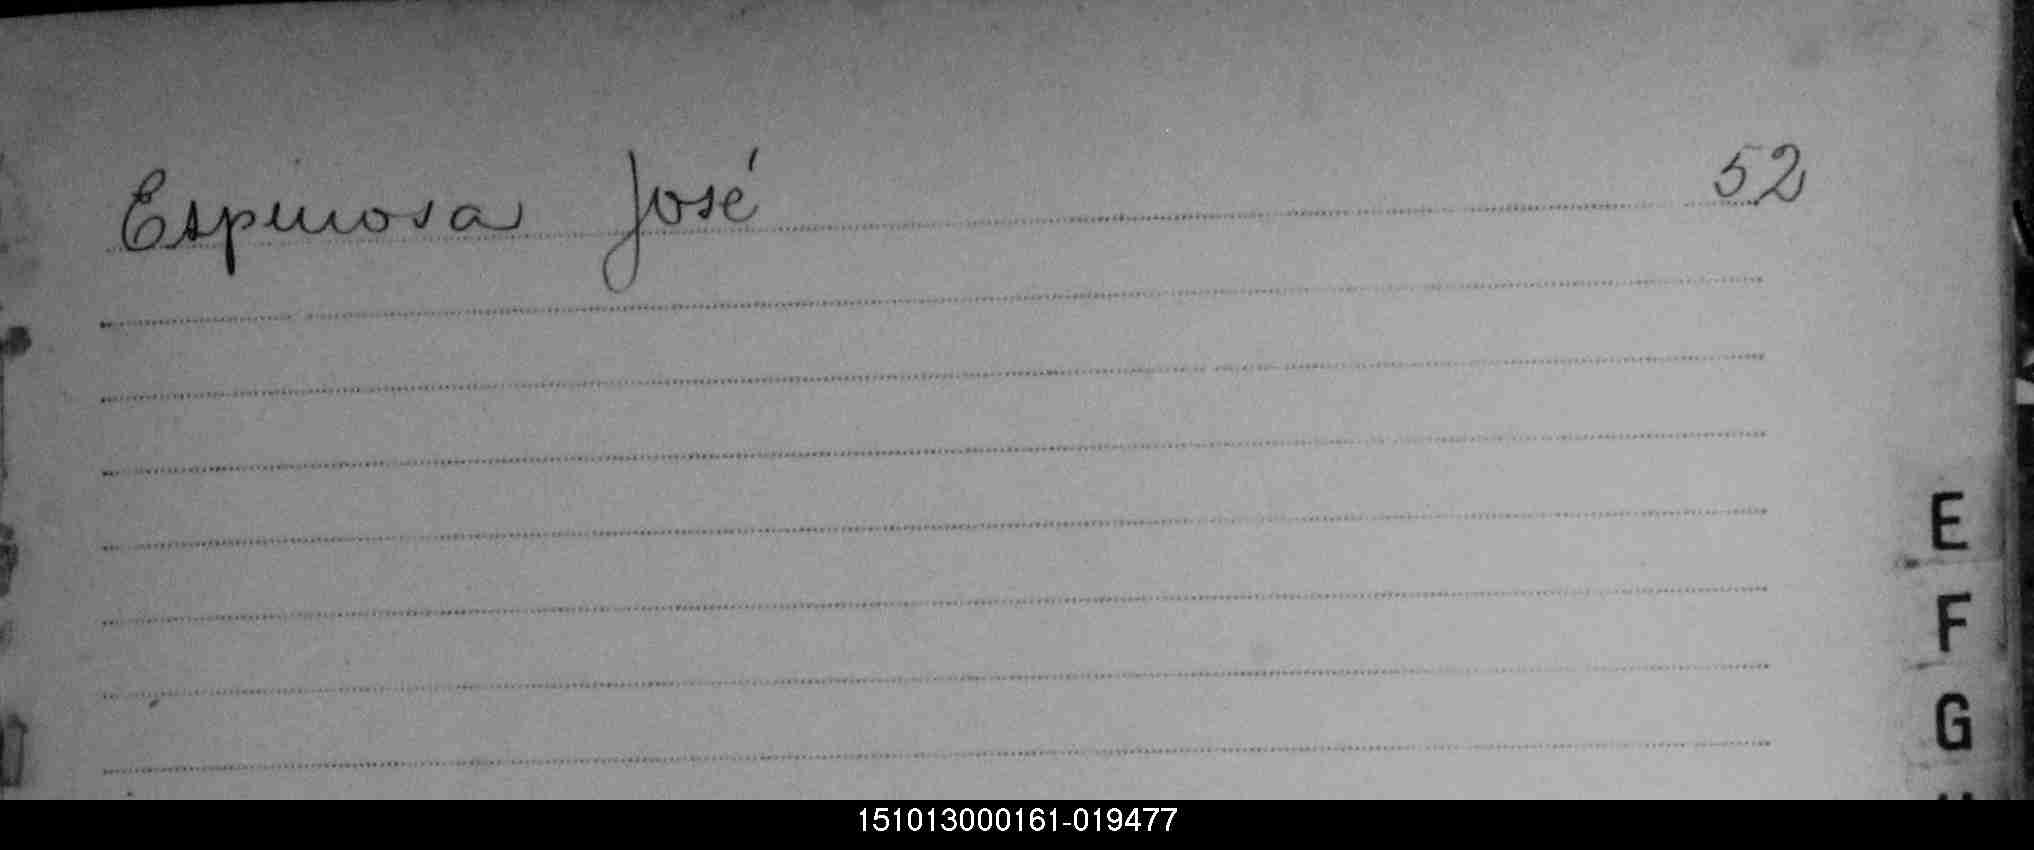 Espinosa José 52
E
F
G
151013000161-019477